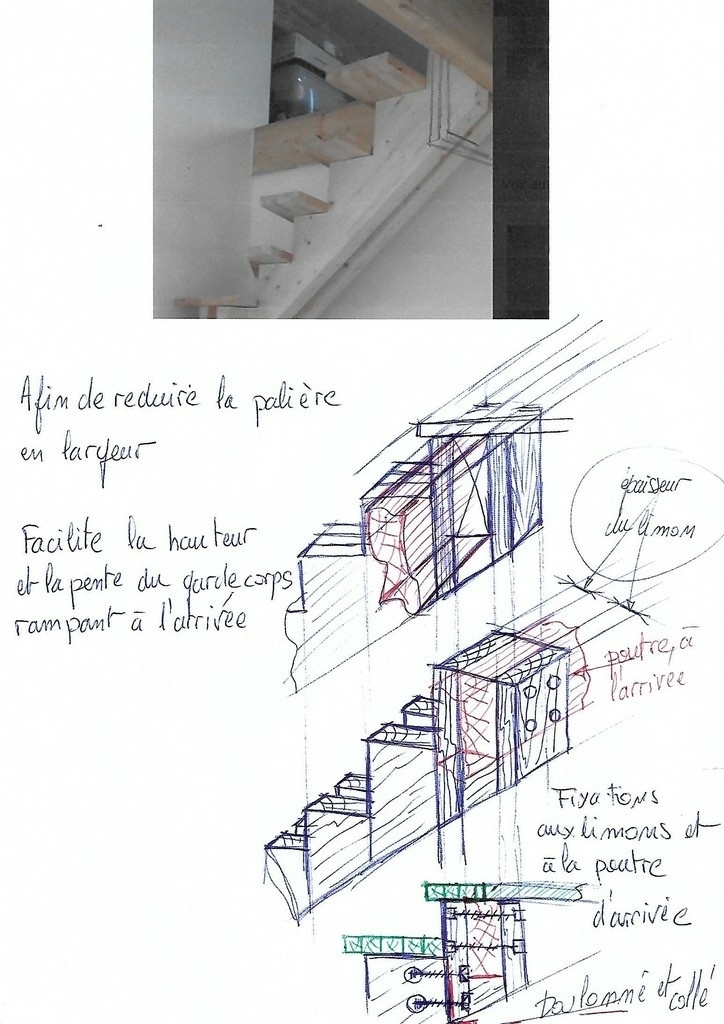 Voir au
Afin de reduire la palière
en largeur
Facilite la hauteur
et la pente du garde corps
rampant à l'arrivée
épaisseur
du limon
poutre, à
l'arrivée
Fixations
aux limons et
à la poutre
d'arrivée
boulonné et
collé